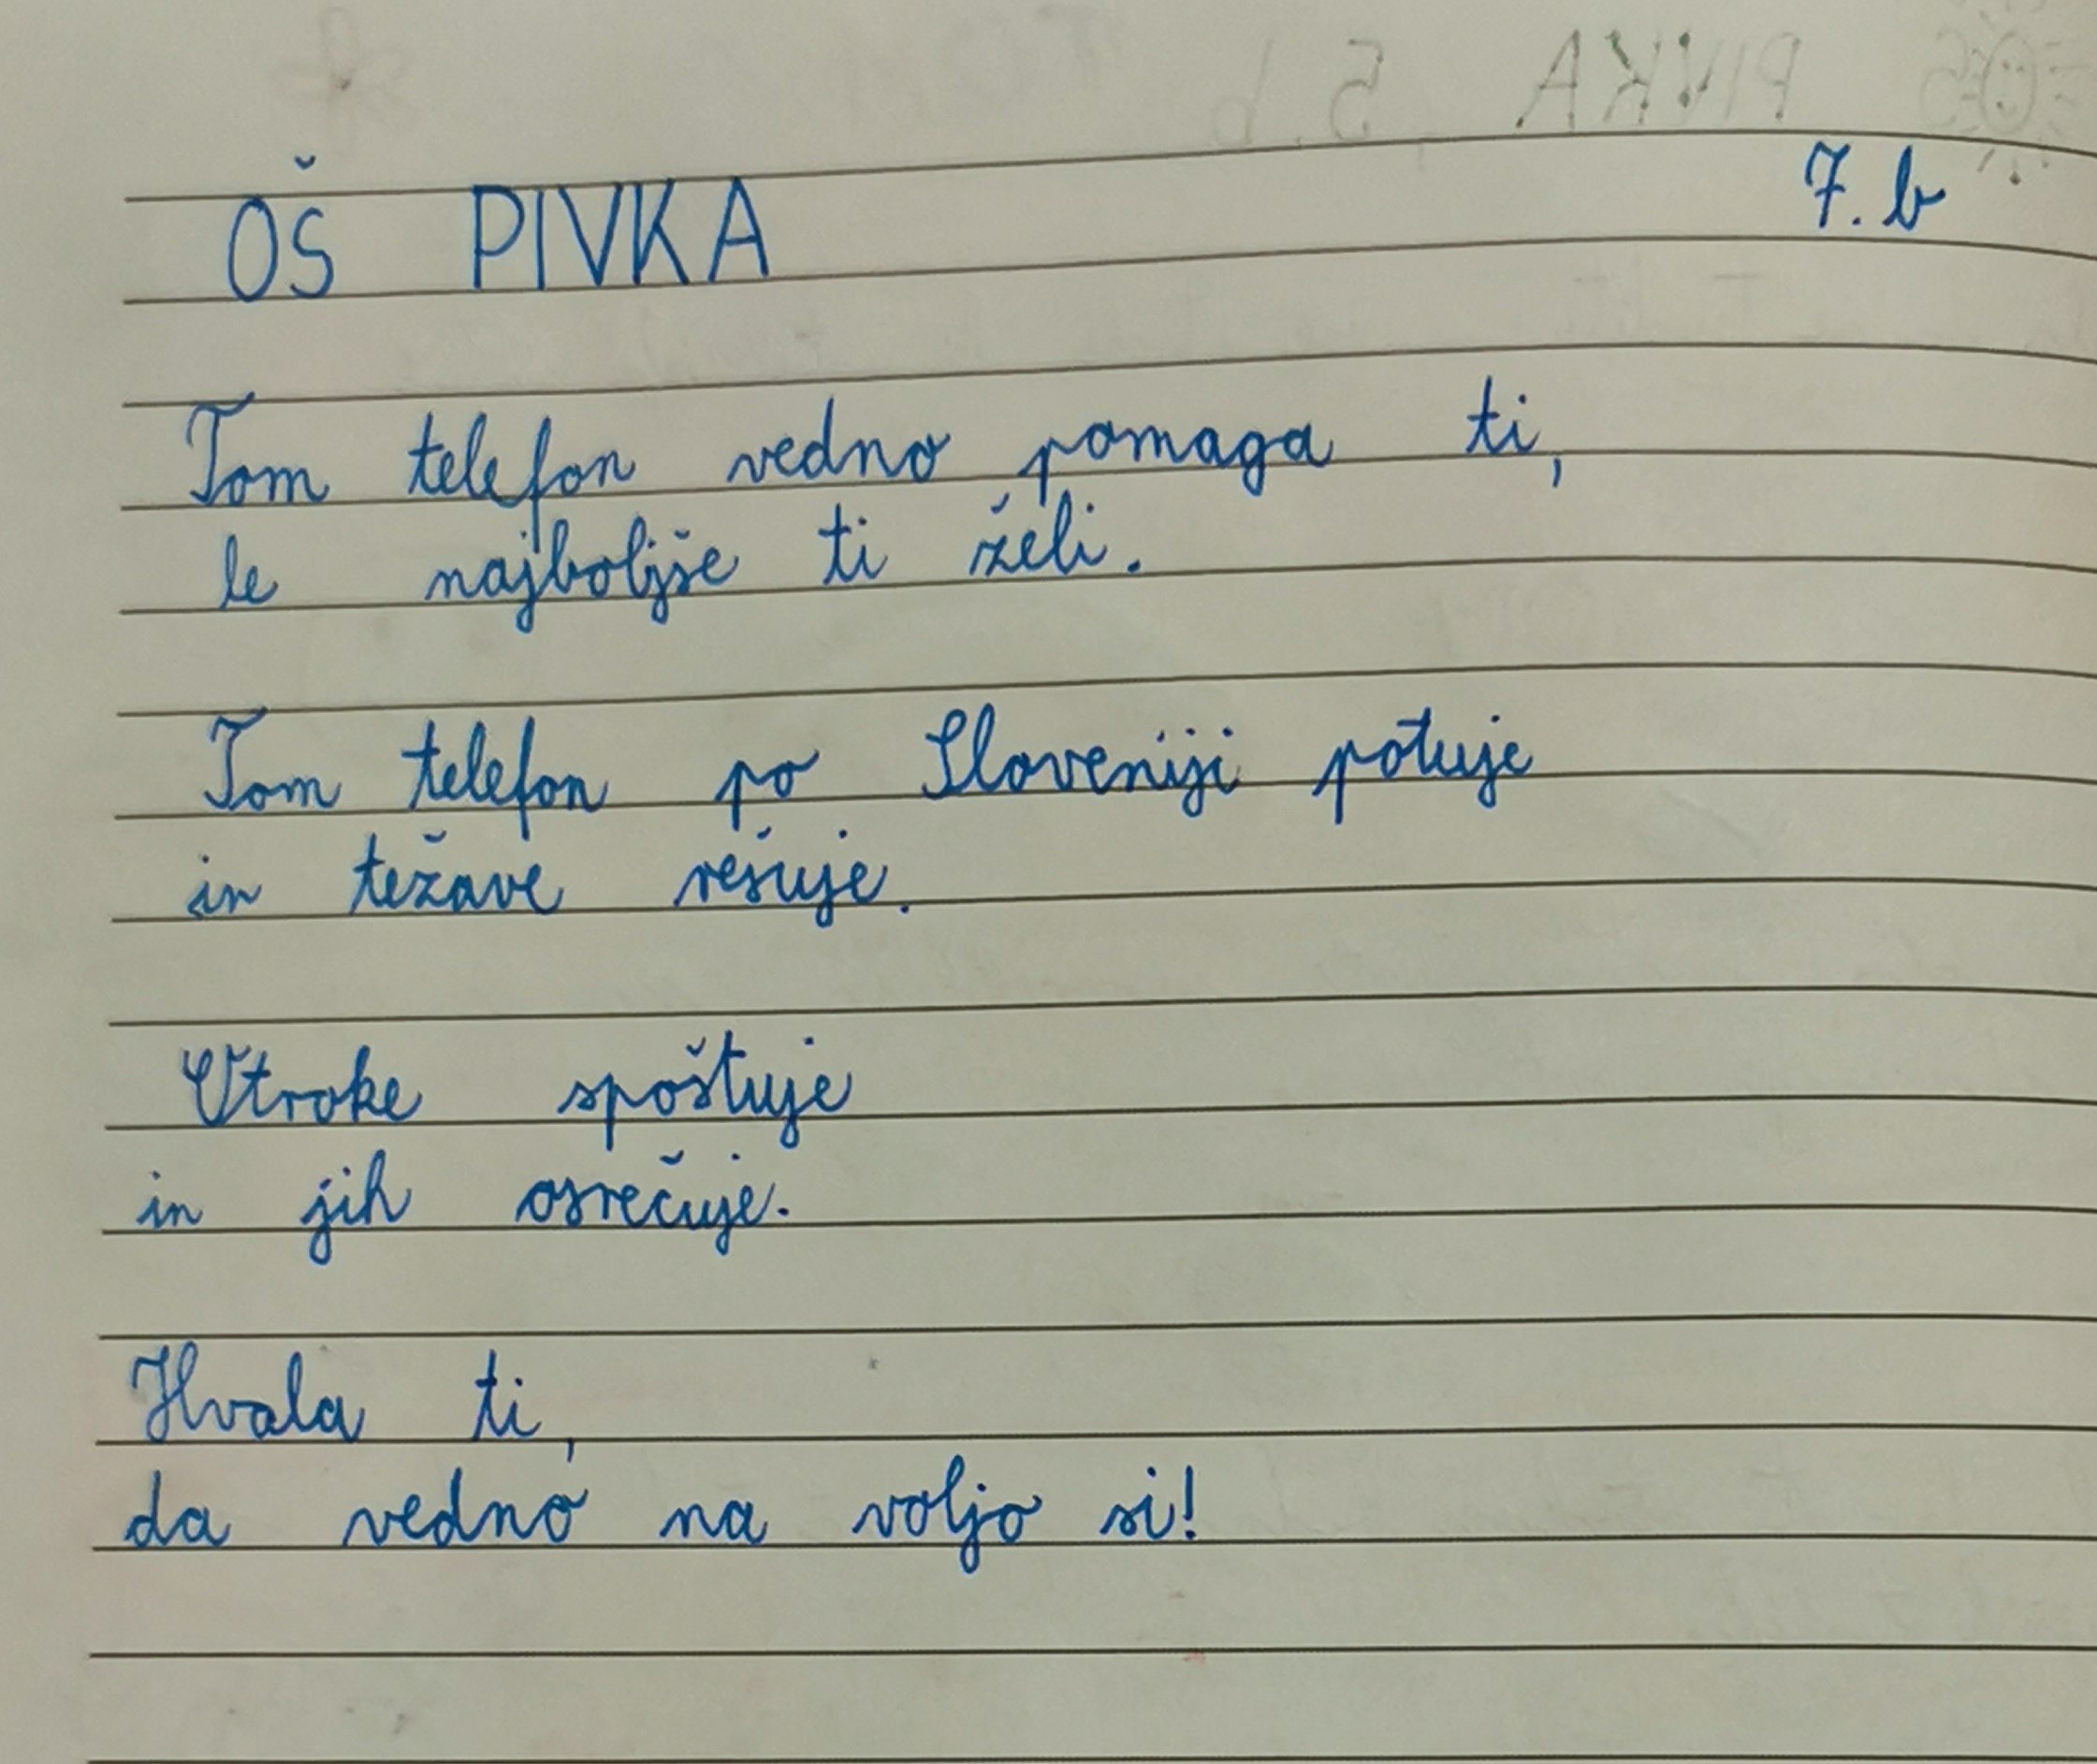 OŠ PIVKA 7. b
Tom telefon vedno pomaga ti,
le najboljše ti želi.
Tom telefon po Sloveniji potuje
in težave rešuje.
Otroke spoštuje
in jih osrečuje.
Hvala ti,
da vedno na voljo si!